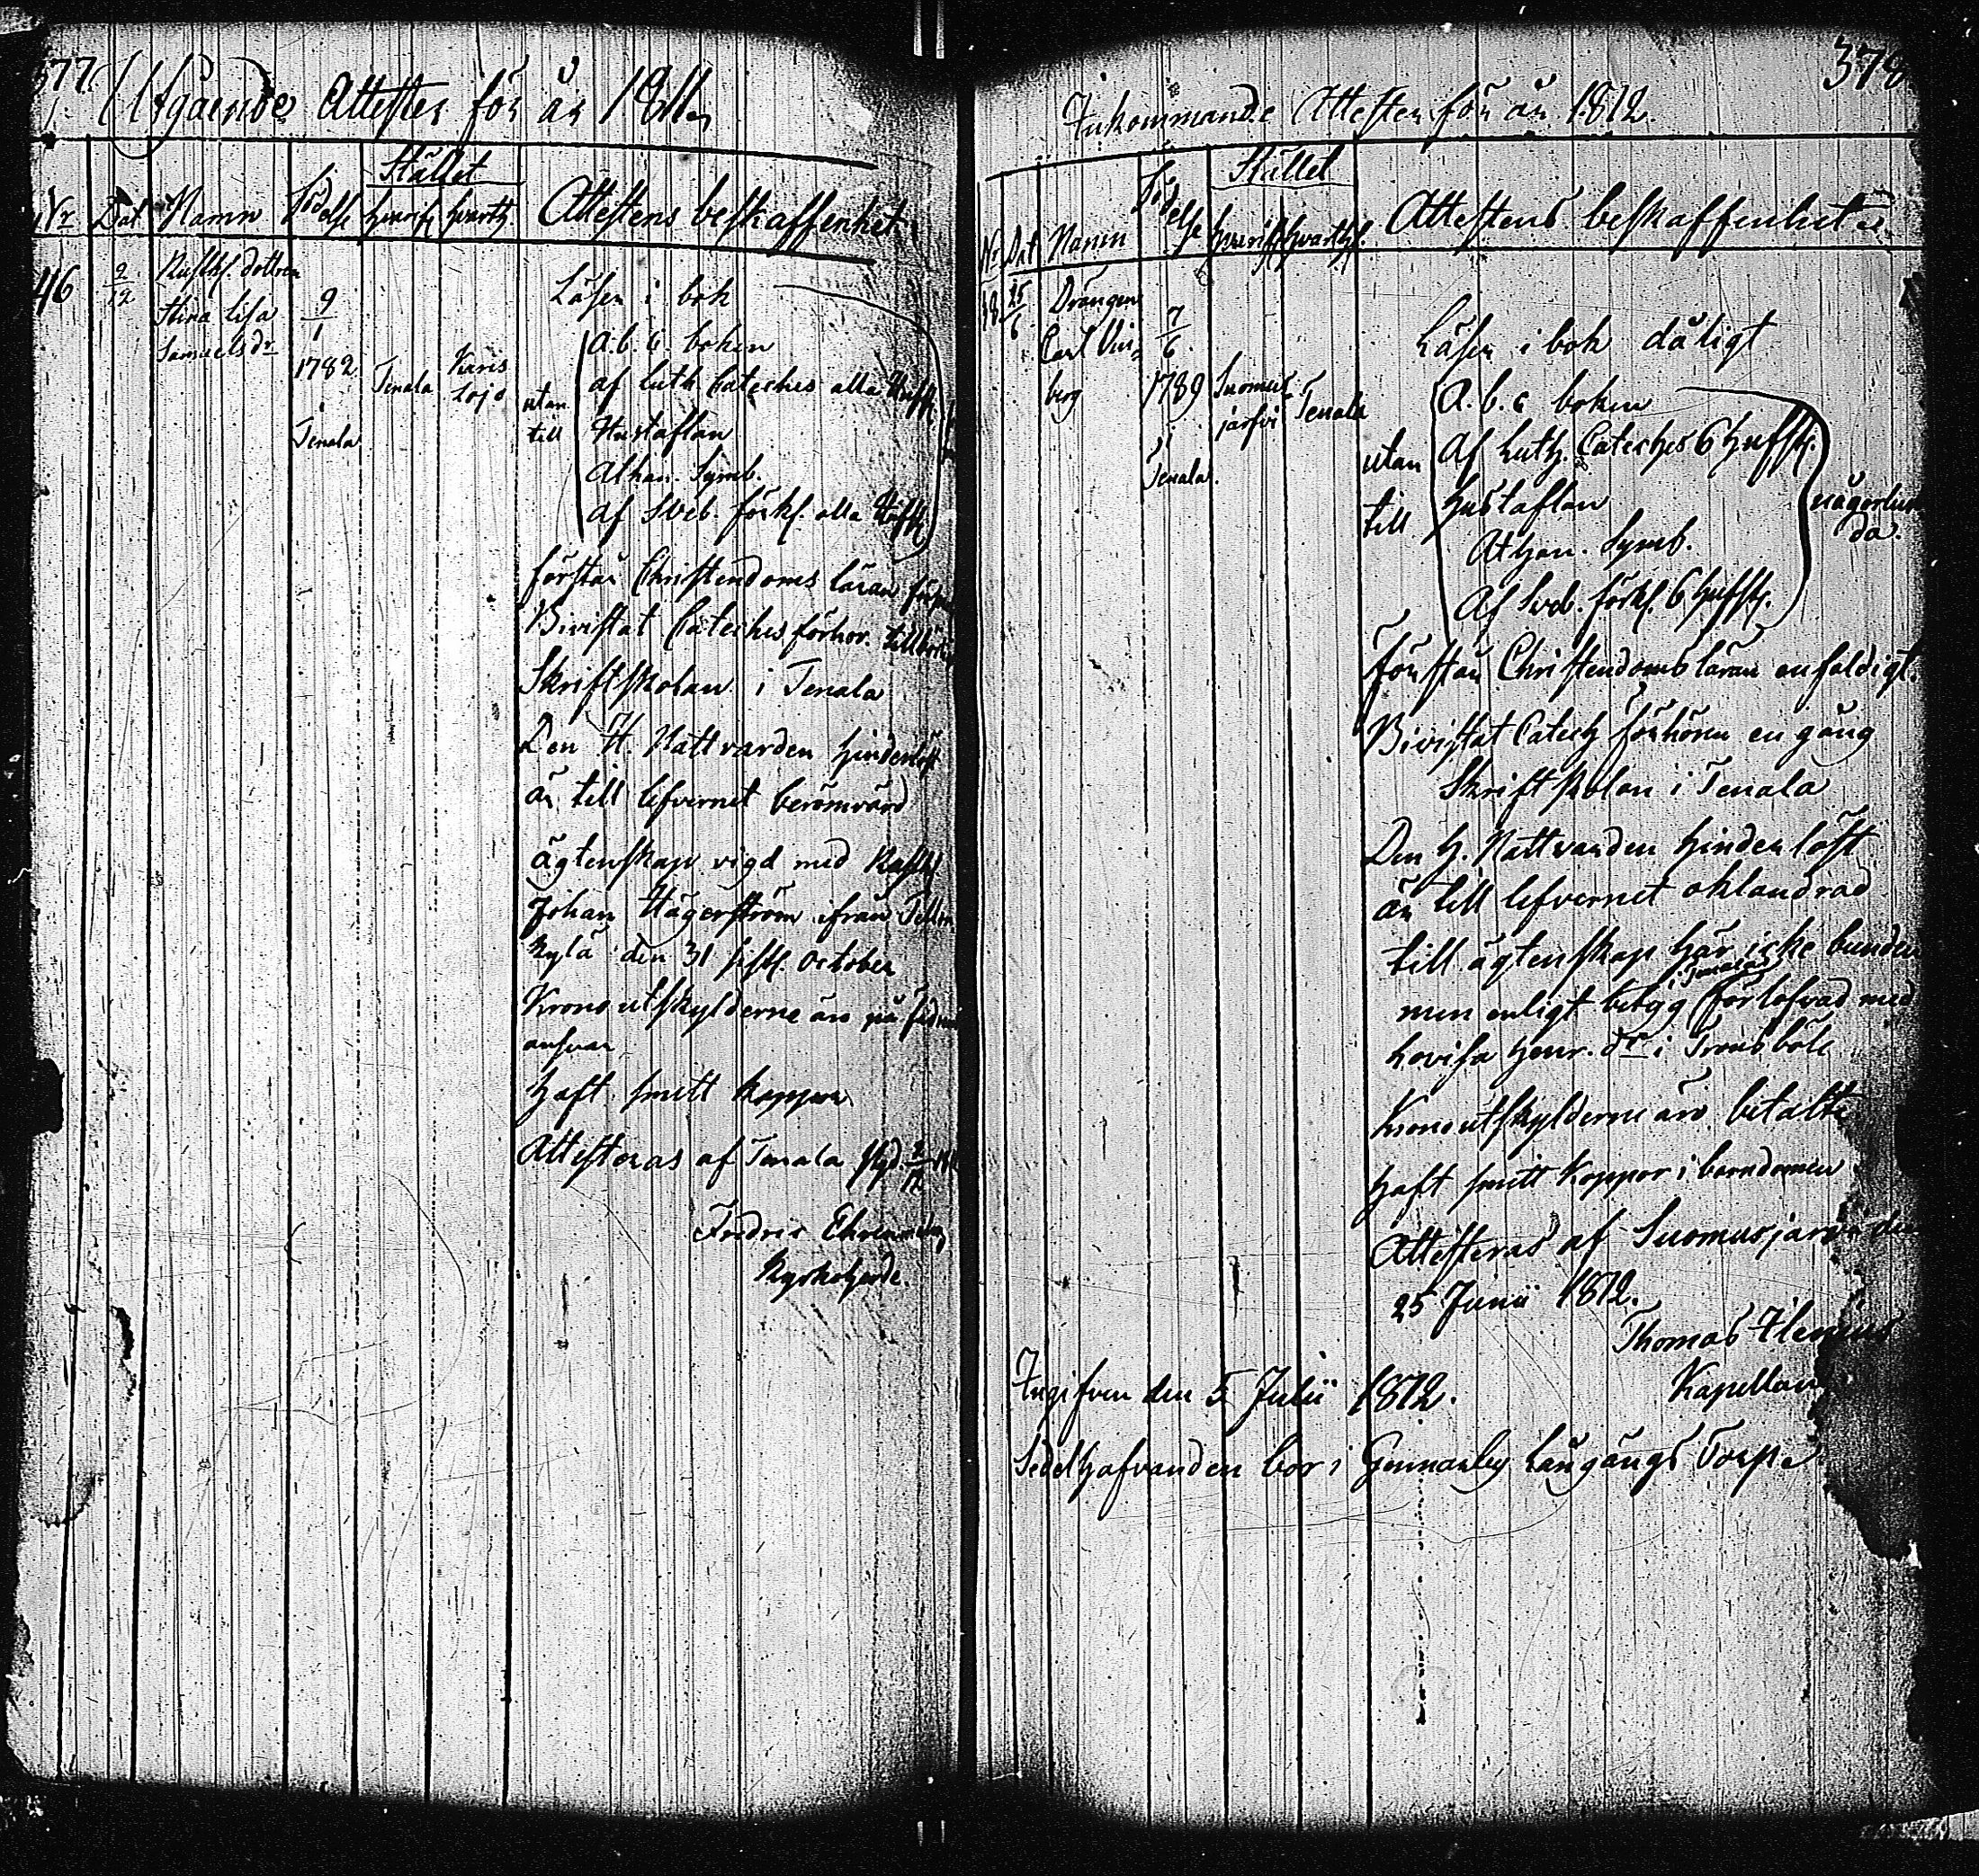 377.
Utgående Attester för år 1811.
Stället
Nr Dat Namn Födelse hvarifr hvarth Attestens beskaffenhet
46 2/12 Rusth. dottren
Stina Lisa
Samuels dr
9/1
1782
i
Tenala
Tenala
Karis
Lojo
Läser i bok
utan
till
A. b. c. boken
af Luth. Cateches alla Hufst.
Hustaflan
Athan. Symb.
af Sveb. förkl. alla Hufst.
förstår Christendoms läran
Bivistat Cateches förhör.
Skriftskolan i Tenala
Den H. Nattvarden hinderlöst
är till lefvernet berömvärd
ägtenskap vigd med Rusth.
Johan Hägerström ifrån
kylä den 31 sistl. October
Krono utskylderne äro på
ansvar
Haft smitt koppor
Attesteras af Tenala
Fredric
Kyrkoherde.
378
Inkommande Attester för år 1812.
Stället
Nr Dat Namn Födelse hvarifr hvarth. Attestens beskaffenhet
38 25/6 Drängen
Carl Vin-
berg
7/6
1789
i
Tenala.
Suomus-
järfvi
Tenala
Läser i bok dåligt
utan
till
A. b. c boken
Af Luth. Cateches 6 Hufst.
Hustaflan
Athan. Symb.
Af Sveb. förkl. 6 Hufst.
någorlun
da.
Förstår Christendoms läran enfaldigt.
Bivistat Catech förhören en gång
Skriftskolan i Tenala
Den H. Nattvarden hinderlöst
är till lefvernet oklandrad
till ägtenskap här icke bunden
men enligt betyg förlofvad med
Lovisa Henr. dr i Trensböle
Kronoutskylderne äro betalte
Haft smitt Koppor i barndomen
Attesteras af Suomusjärvi den
25 Junii 1812.
Thomas
Kapellan
Ingifven den 5 Julii 1812.
Sedelhafvanden bor i Gennarby Långängs Torp